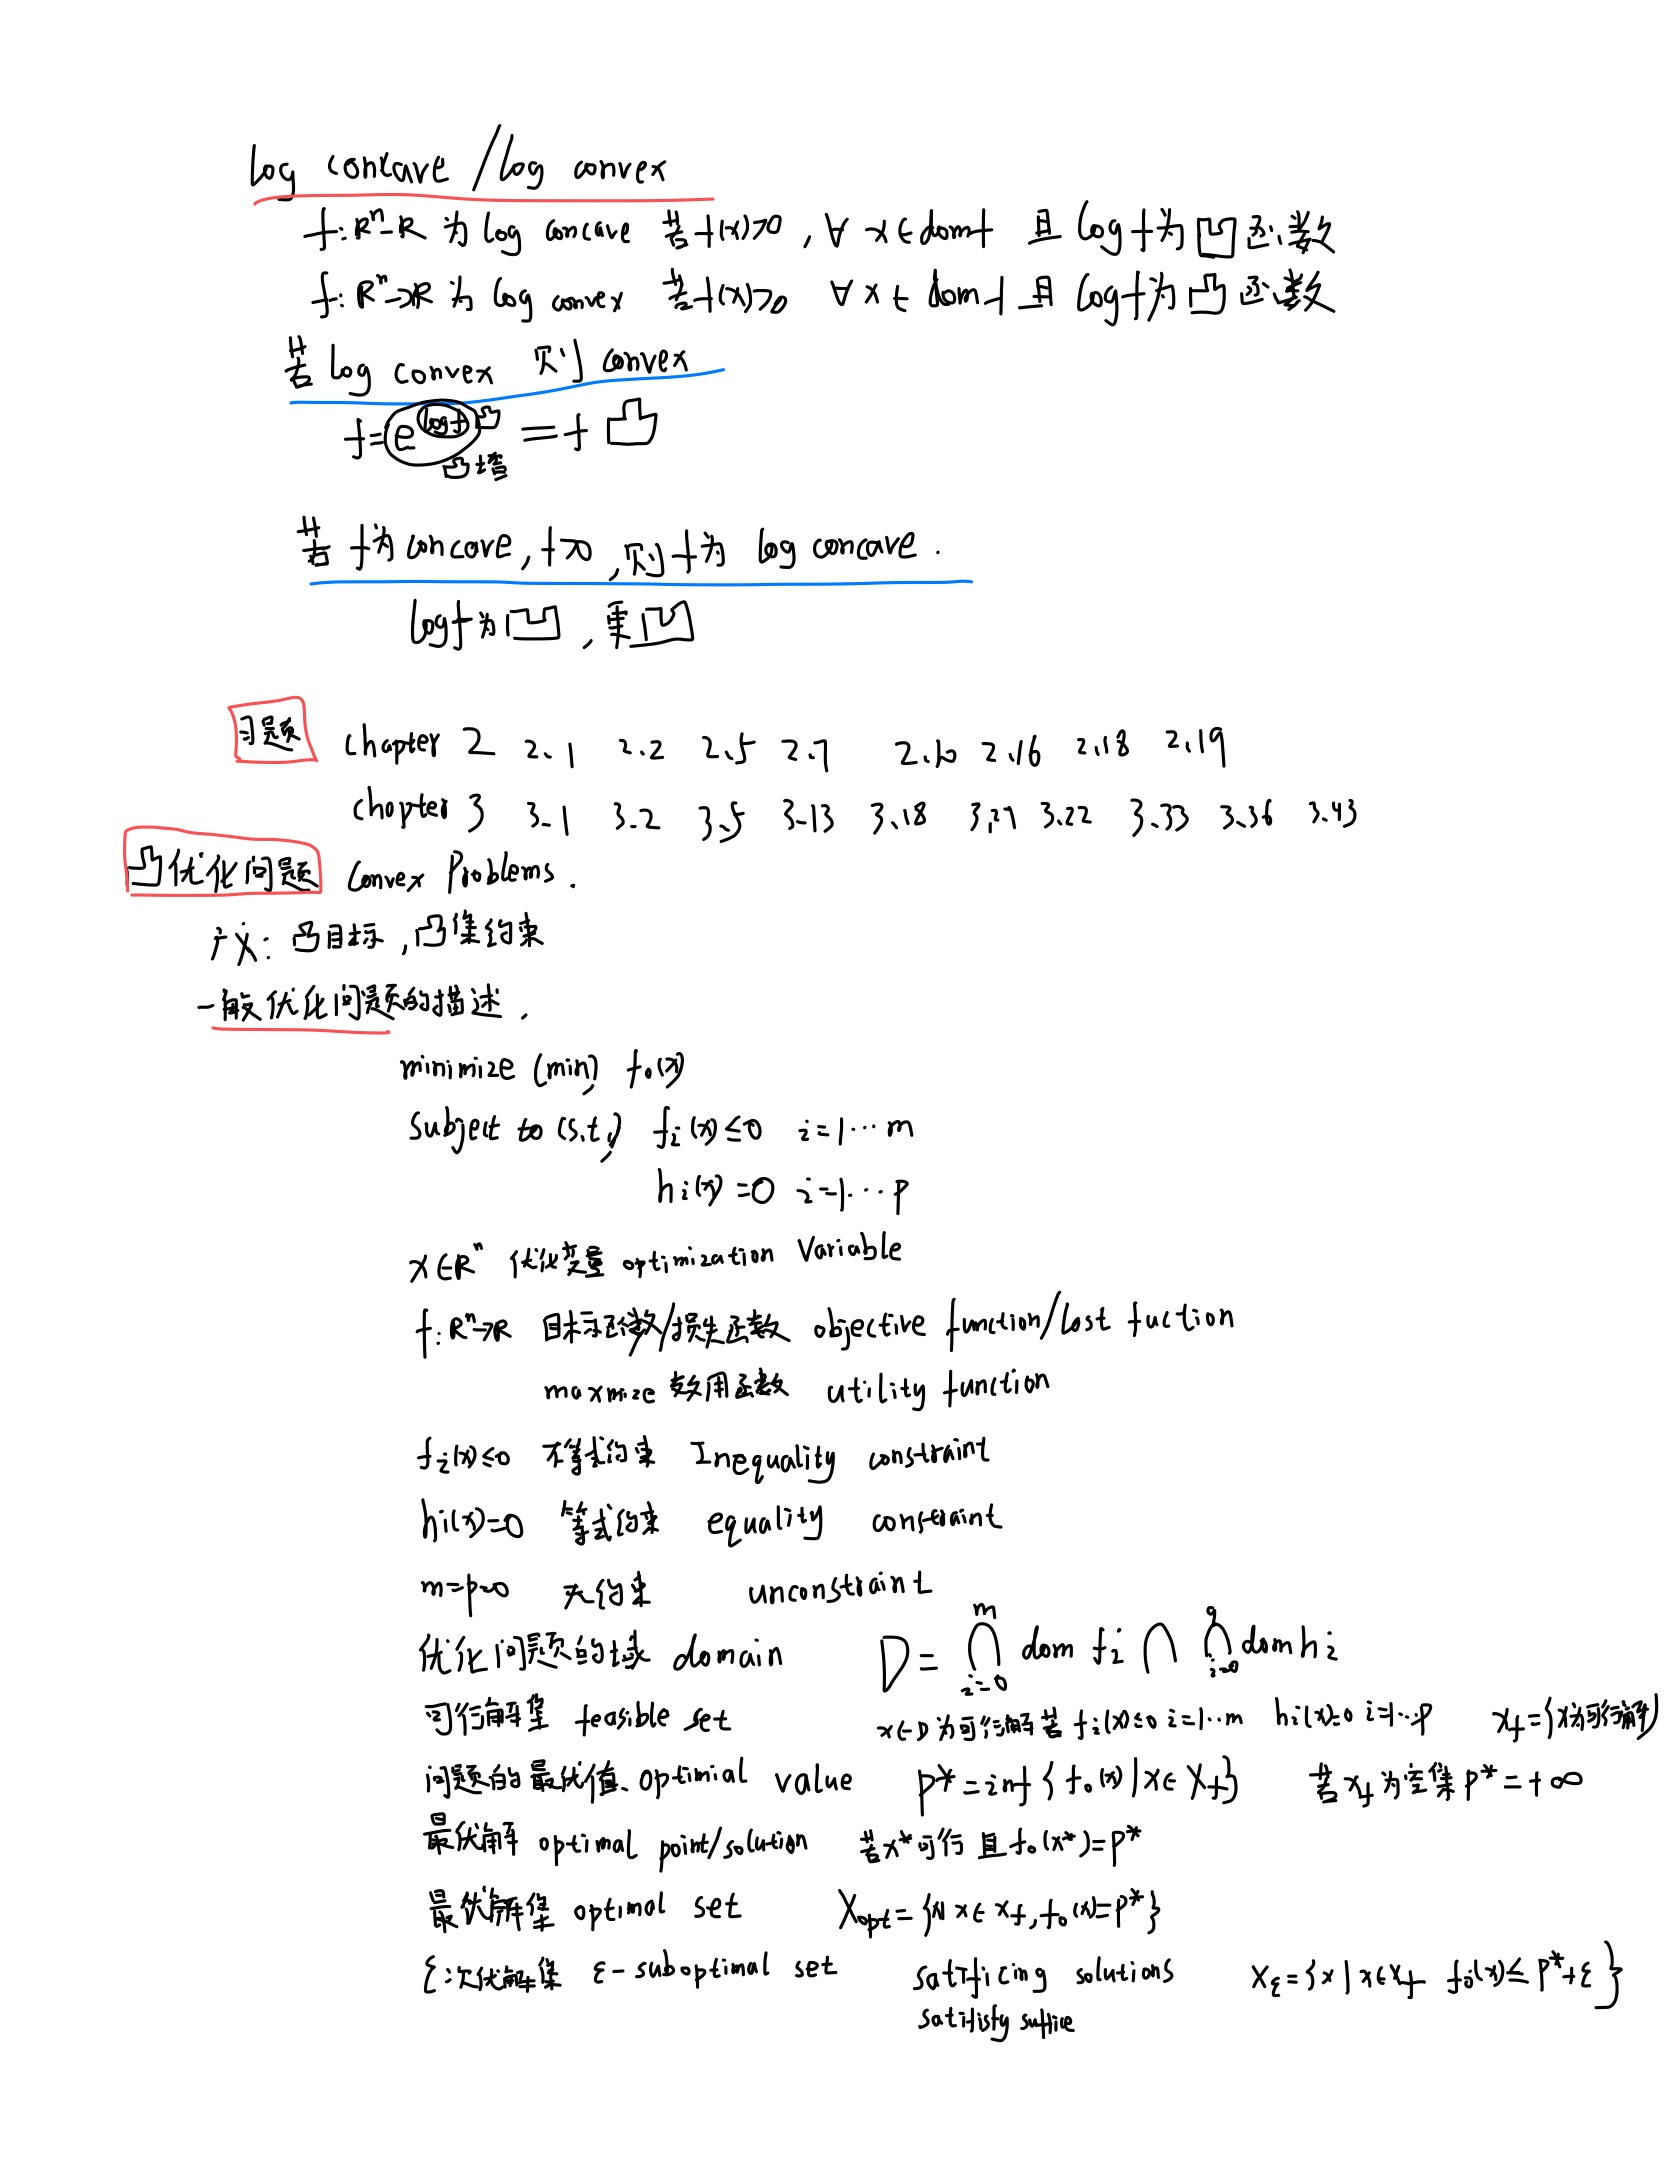 log concave / log convex
f: Rⁿ-R 为 log concave 若 f(x)>0, ∀ x∈domf 且 log f为 凹函数
f: Rⁿ→R 为 log convex 若 f(x)>0 ∀ x∈ dom f 且 log f为 凸函数
若 log convex 则 convex
f=e^(log f) 凸 = f 凸
凸增
若 f为 concave, f>0, 则 f为 log concave.
log f为 凹, 更凹
习题 chapter 2 2.1 2.2 2.5 2.7 2.10 2.16 2.18 2.19
chapter 3 3-1 3-2 3.5 3-13 3.18 3.21 3.22 3.33 3.36 3.43
凸优化问题 Convex Problems.
广义: 凸目标, 凸集约束
一般优化问题的描述.
minimize (min) f₀(x)
subject to (s.t.) fᵢ(x)≤0 i=1…m
hᵢ(x)=0 i=1…p
x∈Rⁿ 优化变量 optimization Variable
f: Rⁿ→R 目标函数/损失函数 objective function/Lost fuction
maxmize 效用函数 utility function
fᵢ(x)≤0 不等式约束 Inequality constraint
hi(x)=0 等式约束 equality constraint
m=p=0 无约束 unconstraint
优化问题的域 domain D = ⋂ᵢ₌₀ᵐ dom fᵢ ⋂ ⋂ᵢ₌₀ dom hᵢ
可行解集 feasible set x∈D 为可行解 若 fᵢ(x)≤0 i=1..m hᵢ(x)=0 i=1..p X_f={x为可行解}
问题的最优值. optimial value P*=inf { f₀(x) | x∈ X_f} 若 x_f 为空集 p*=+∞
最优解 optimal point/solution 若x*可行 且 f₀(x*)=P*
最优解集 optimal set X_opt={x| x∈ X_f, f₀(x)=P*}
ε次优解集 ε-suboptimal set satisficing solutions X_ε={x | x∈X_f f₀(x)≤ P*+ε}
satisfy suffice